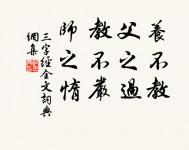 養不教
父之過
教不嚴
師之惰
三字經全文詞典
網集